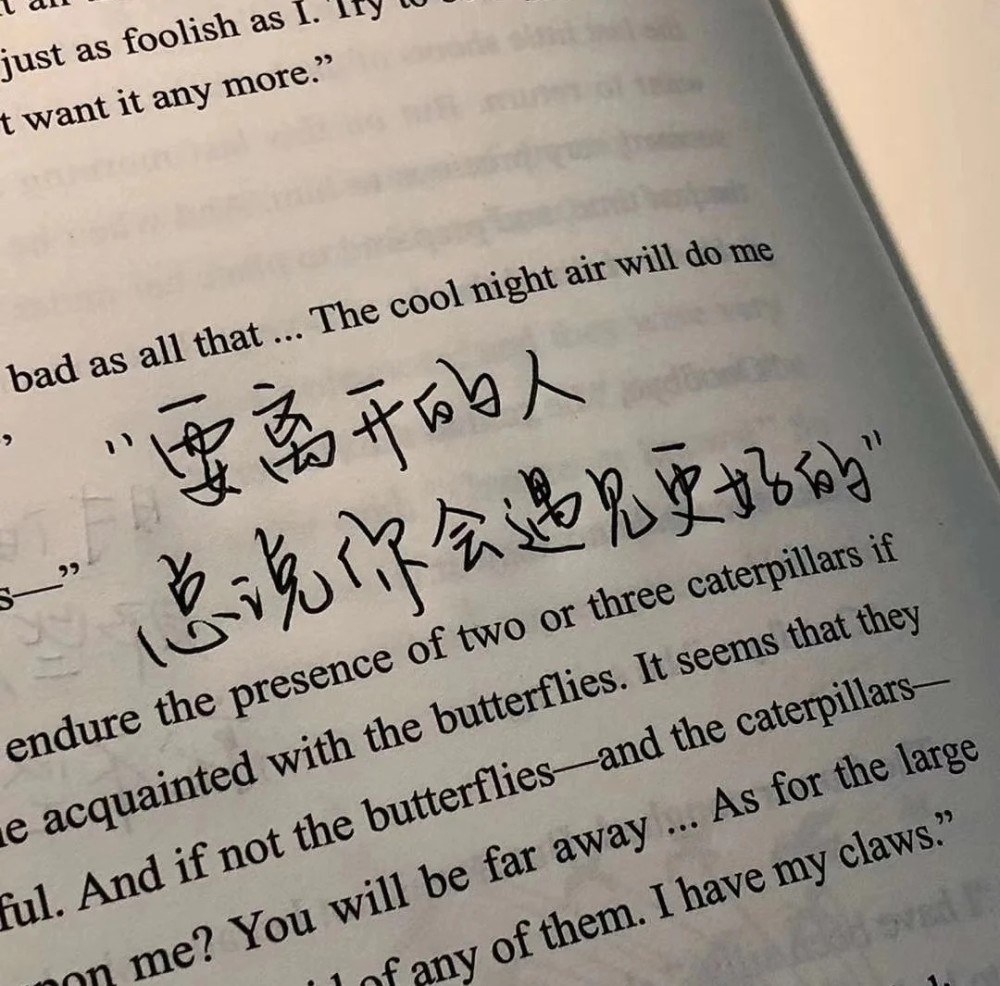 just as foolish as I. Try to
t want it any more.”
bad as all that ... The cool night air will do me
”
“要离开的人
总说你会遇见更好的”
s—”
endure the presence of two or three caterpillars if
e acquainted with the butterflies. It seems that they
ful. And if not the butterflies—and the caterpillars—
pon me? You will be far away ... As for the large
of any of them. I have my claws.”